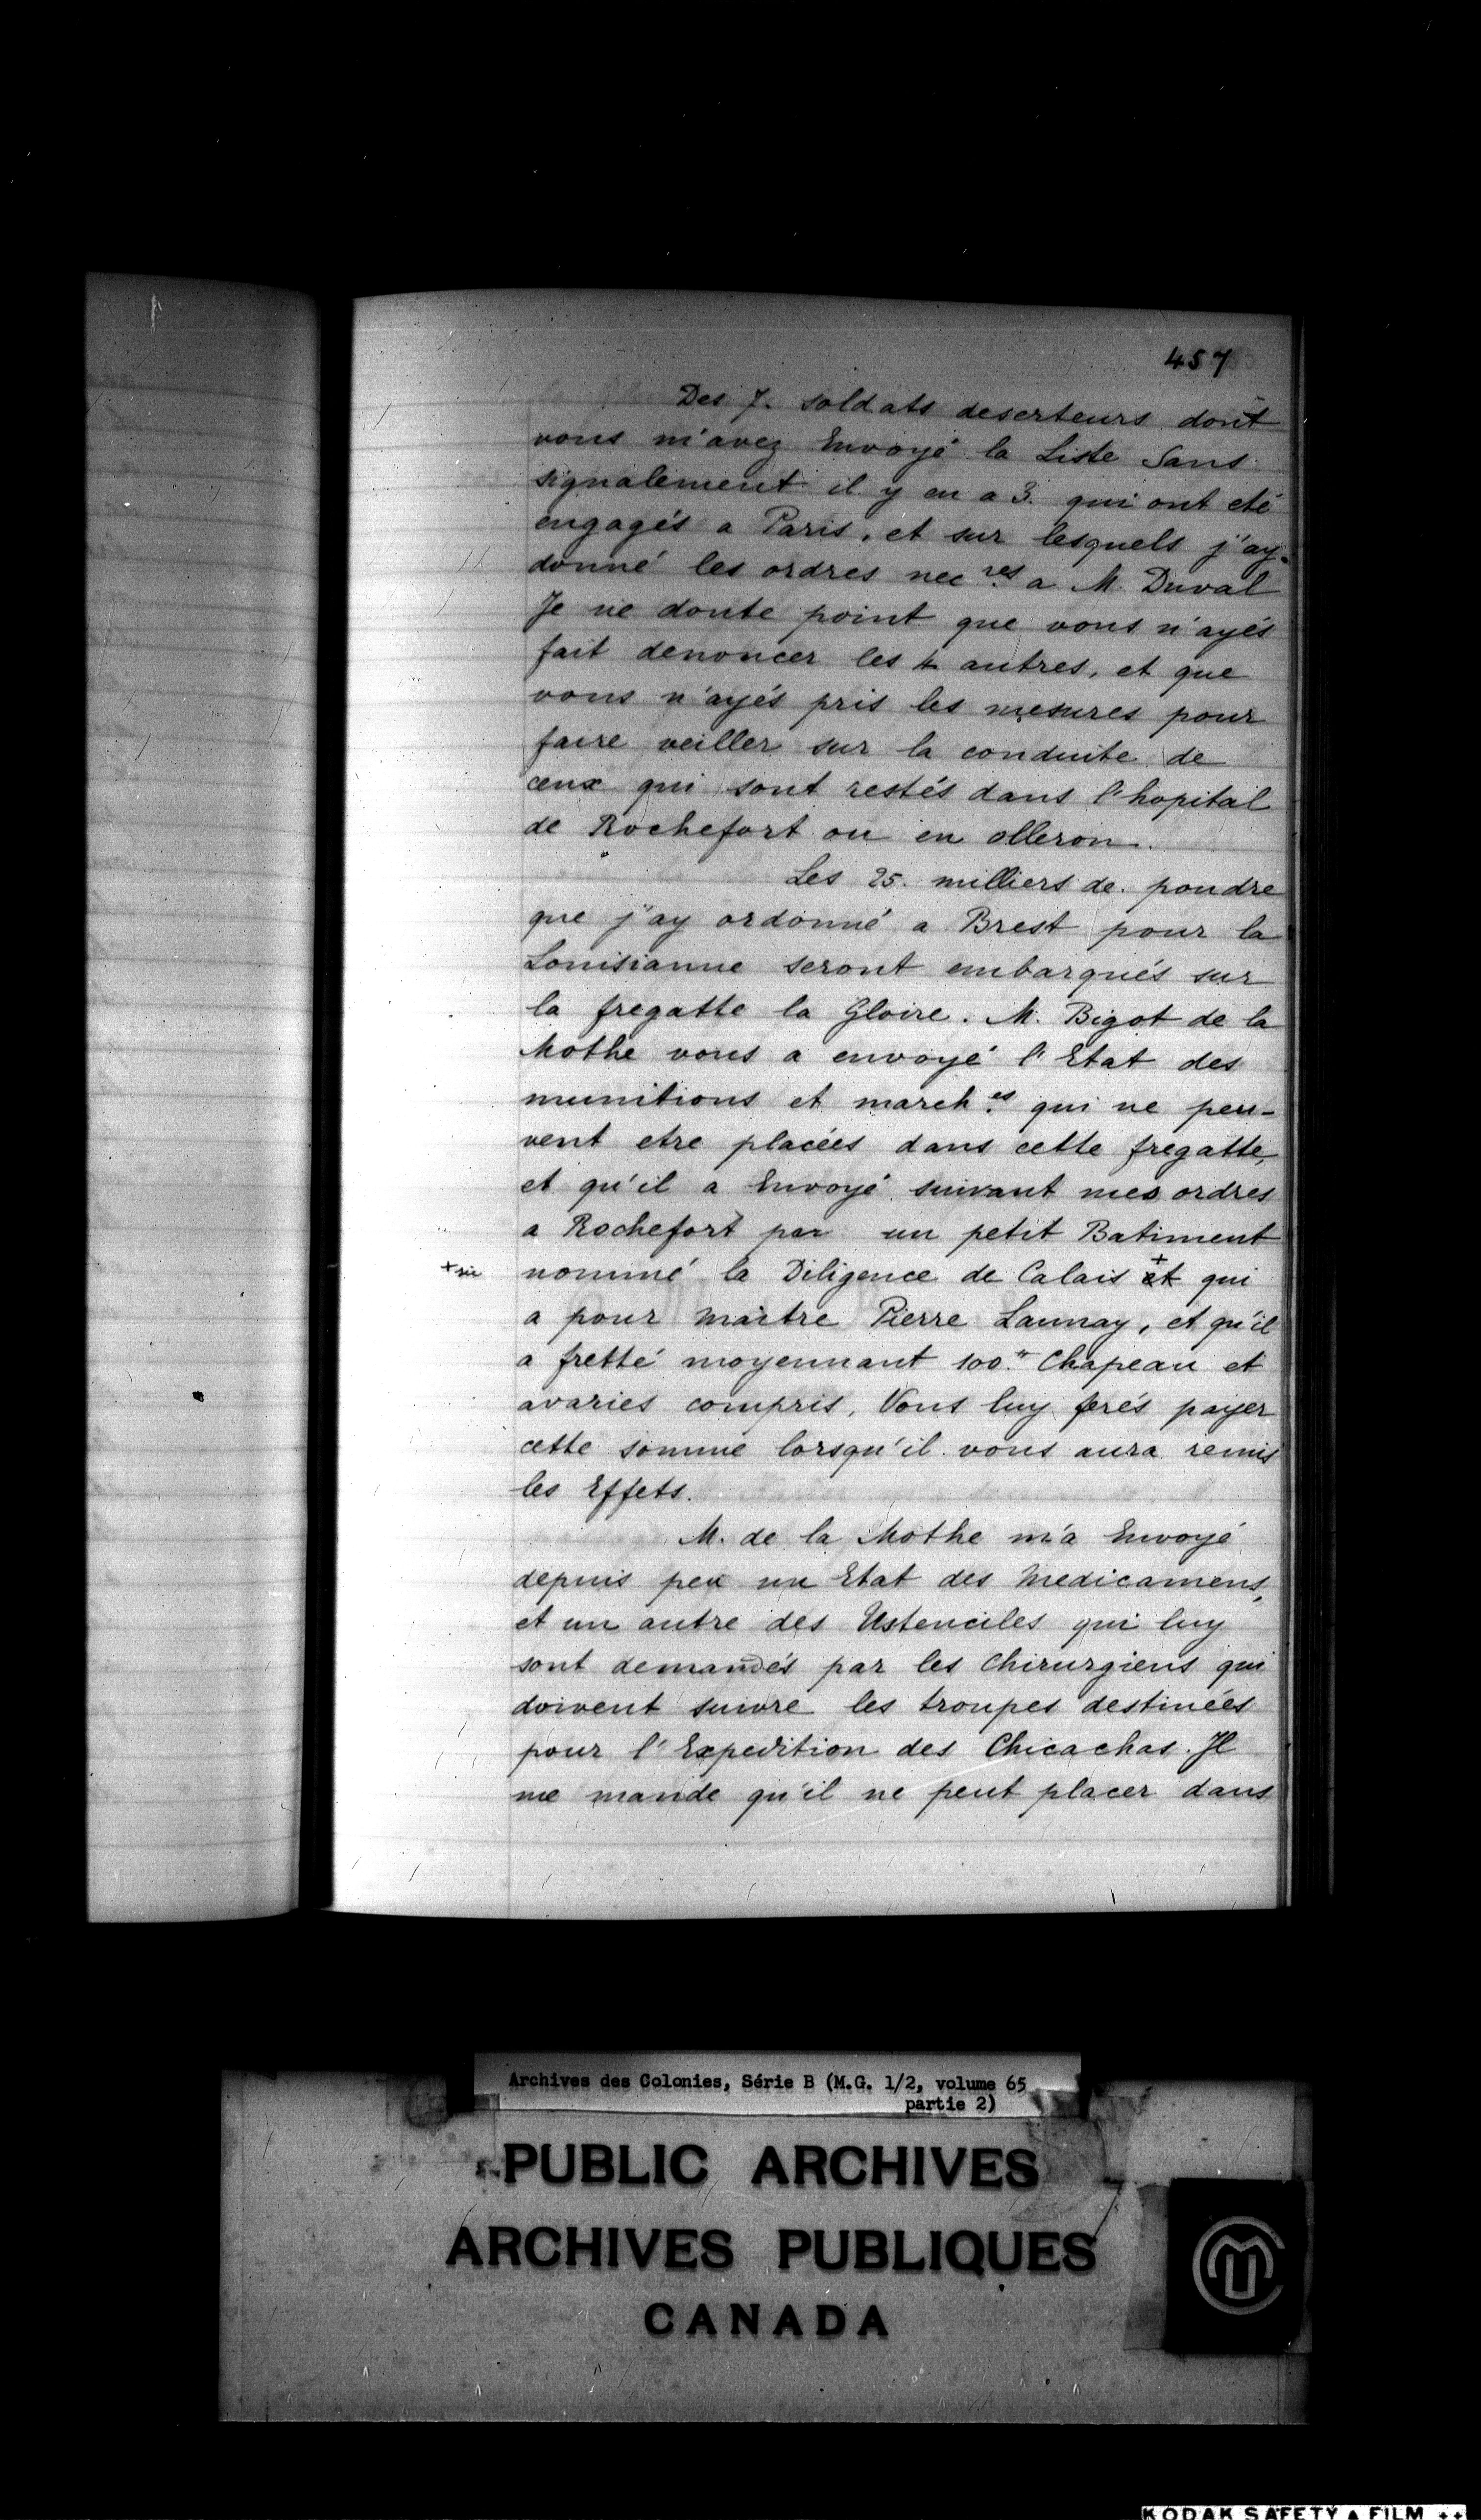 457
Des 7. soldats deserteurs dont
vous m'avez Envoyé la Liste Sans
signalement il y en a 3. qui ont eté
engagés a Paris, et sur lesquels j'ay
donné les ordres nec.res a M. Duval
Je ne doute point que vous n'ayés
fait denoncer les 4 autres, et que
vous n'ayés pris les mesures pour
faire veiller sur la conduite de
ceux qui sont restés dans l'hopital
de Rochefort ou en olleron.
Les 25. milliers de poudre
que j'ay ordonné a Brest pour la
Louisianne seront embarqués sur
la fregatte la Gloire. M. Bigot de la
Mothe vous a envoyé l'Etat des
munitions et march.es qui ne peu-
vent etre placées dans cette fregatte,
et qu'il a Envoyé suivant mes ordres
a Rochefort par un petit Batiment
+ sic nommé la Diligence de Calais + et qui
a pour maitre Pierre Launay, et qu'il
a fretté moyennant 100.# Chapeau et
avaries compris. Vous luy ferés payer
cette somme lorsqu'il vous aura remis
les Effets.
M. de la Mothe m'a Envoyé
depuis peu un Etat des medicamens,
et un autre des Ustenciles qui luy
sont demandés par les Chirurgiens qui
doivent suivre les troupes destinées
pour l'Expedition des Chicachas. Il
me mande qu'il ne peut placer dans
Archives des Colonies, Série B (M.G. 1/2, volume 65
partie 2)
PUBLIC ARCHIVES
ARCHIVES PUBLIQUES
CANADA
KODAK SAFETY FILM